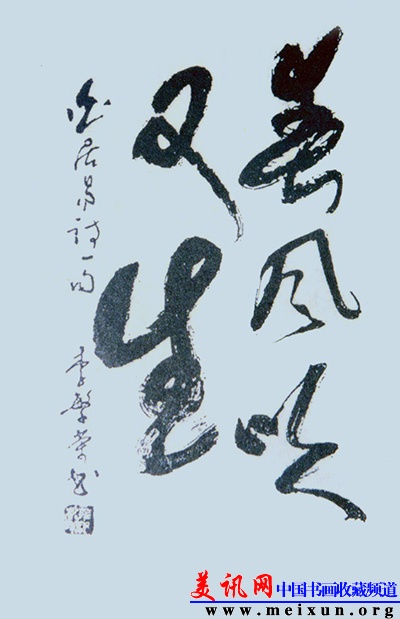 春风吹
又生
白居易诗一句
李繁荣书
美讯网中国书画收藏频道
www.meixun.org